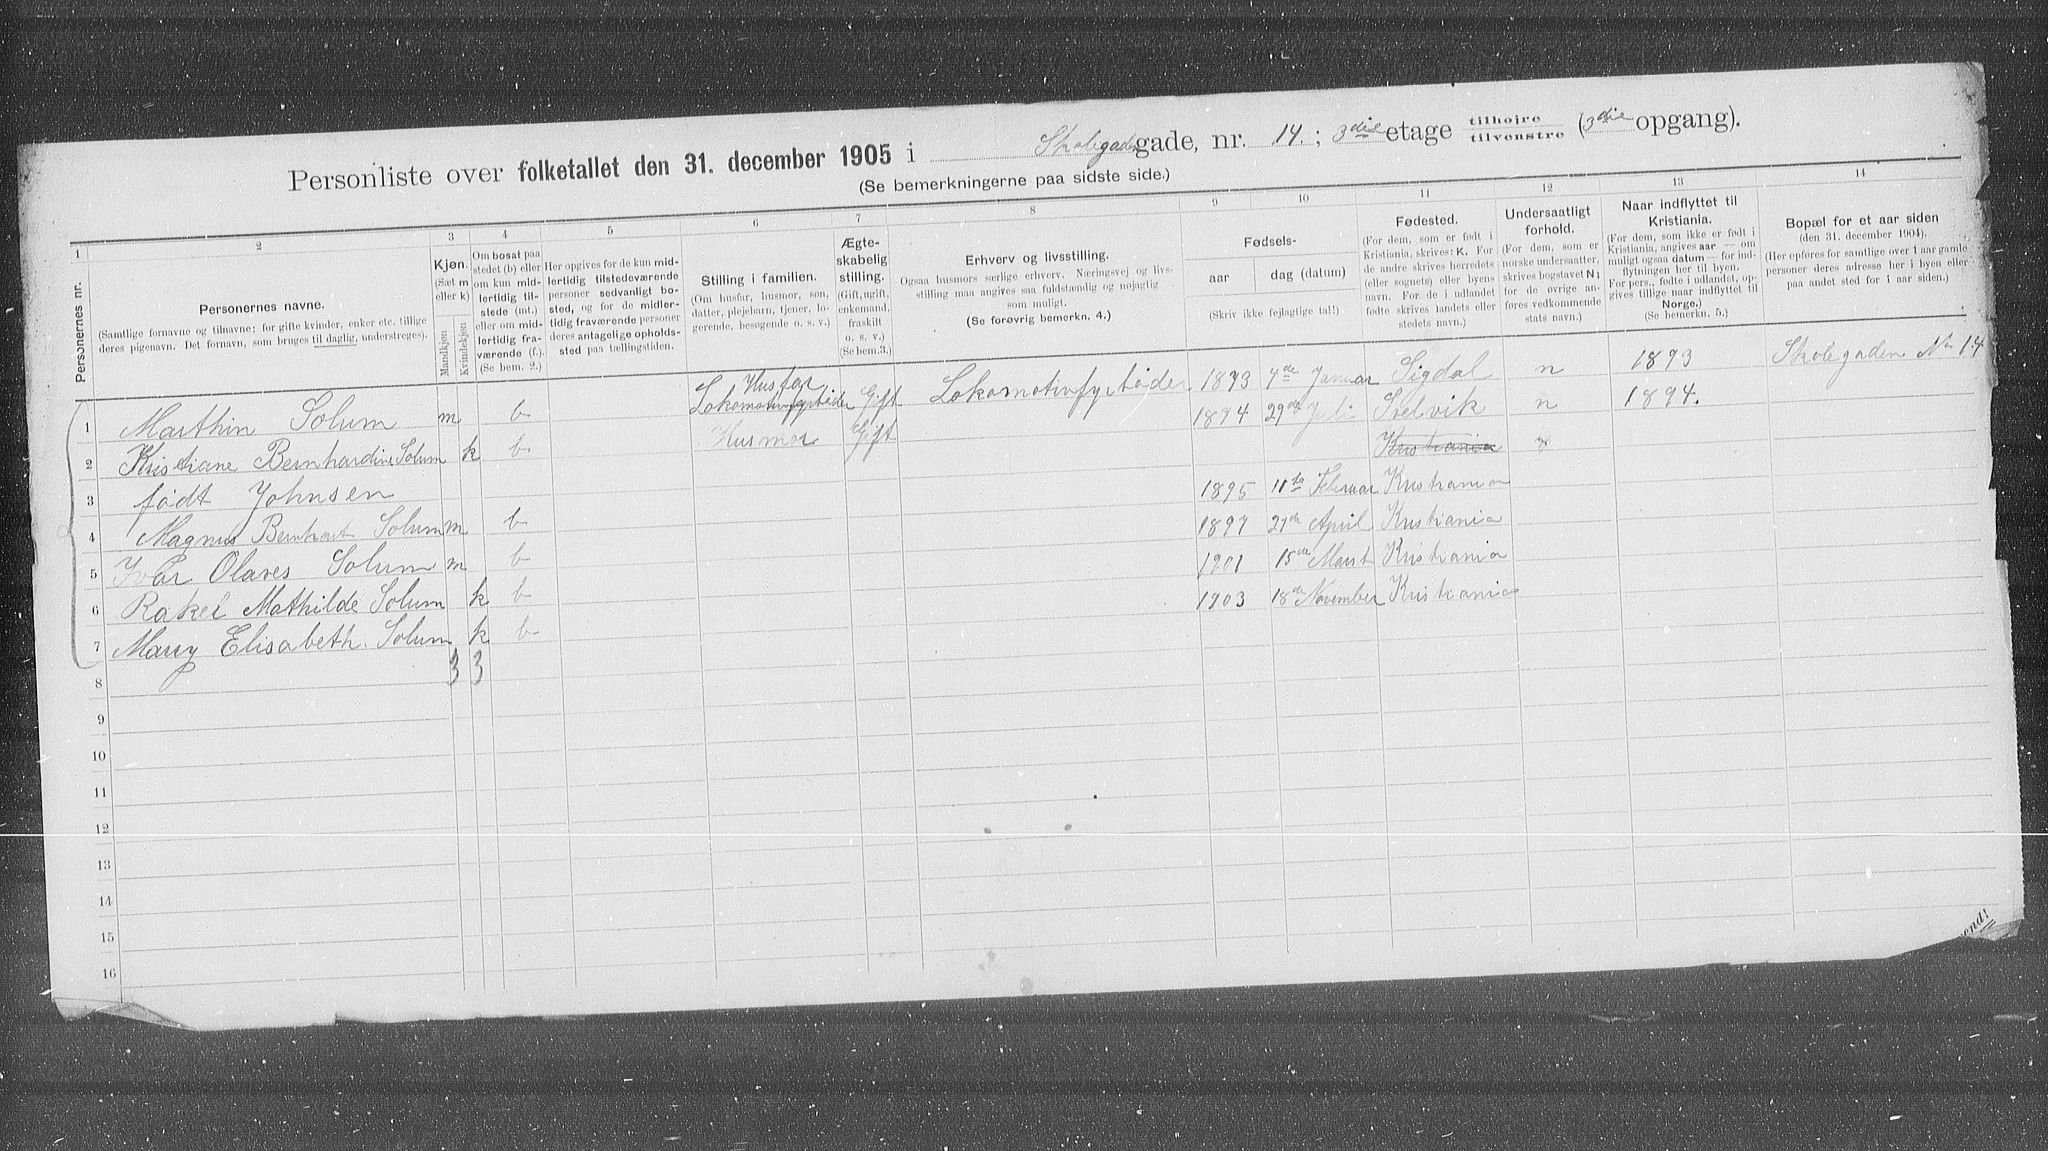 Personliste over folketallet den 31. december 1905 i Skolegaden gade, nr. 14. ; 3die etage tilhøjre tilvenstre (3die opgang).
(Se bemerkningerne paa sidste side.)
1 2 3 4 5 6 7 8 9 10 11 12 13 14
Personernes nr.
Personernes navne.
(Samtlige fornavne og tilnavne; for gifte kvinder, enker etc. tillige
deres pigenavn. Det fornavn, som bruges til daglig, understreges).
Kjøn.
(Sæt m
eller k)
Mandkjøn
Kvindekjøn
Om bosat paa
stedet (b) eller
om kun mid-
lertidig til-
stede (mt.)
eller om mid-
lertidig fra-
værende (f.).
(Se bem. 2.)
Her opgives for de kun mid-
lertidig tilstedeværende
personer sedvanligt bo-
sted, og for de midler-
tidig fraværende personer
deres antagelige opholds-
sted paa tællingstiden.
Stilling i familien.
(Om husfar, husmor, søn,
datter, plejebarn, tjener, lo-
gerende, besøgende o. s. v.)
Ægte-
skabelig
stilling.
(Gift, ugift,
enkemand,
fraskilt
o. s. v.)
(Se bem. 3.)
Erhverv og livsstilling.
Ogsaa husmors særlige erhverv. Næringsvej og livs-
stilling maa angives saa fuldstændig og nøjagtig
som muligt.
(Se forøvrig bemerkn. 4.)
Fødsels-
aar
dag (datum)
(Skriv ikke fejlagtige tal!)
Fødested.
(For dem, som er født i
Kristiania, skrives: K. For
de andre skrives herredets
(eller sognets) eller byens
navn. For de i udlandet
fødte skrives landets eller
stedets navn.)
Undersaatligt
forhold.
(For dem, som er
norske undersaatter,
skrives bogstavet N;
for de øvrige an-
føres vedkommende
stats navn.)
Naar indflyttet til
Kristiania.
(For dem, som ikke er født i
Kristiania, angives aar — om
muligt ogsaa datum — for ind-
flytningen her til byen.
For pers., fødte i udlandet, op-
gives tillige naar indflyttet til
Norge.)
(Se bemerkn. 5.)
Bopæl for et aar siden
(den 31. december 1904).
(Her opføres for samtlige over 1 aar gamle
personer deres adresse her i byen eller
paa andet sted for 1 aar siden.)
1 Marthin Solum m b Husfar Lokomotivfyrbøder Gift Lokomotivfyrbøder 1873 7de Januar Sigdal n 1893 Skolegaden No 14
2 Kristiane Bernhardine Solum k b Husmor Gift 1874 29de Juli Svelvik n 1894.
3 født Johnsen Kristiania
4 Magnus Bernhart Solum m b 1895 11te Februar Kristiania
5 Ivar Olaves Solum m b 1897 27de April Kristiania
6 Rakel Mathilde Solum k b 1901 15de Marst Kristiania
7 Marry Elisabeth Solum k b 1903 18de November Kristiania
8 3 3
9
10
11
12
13
14
15
16
vend!